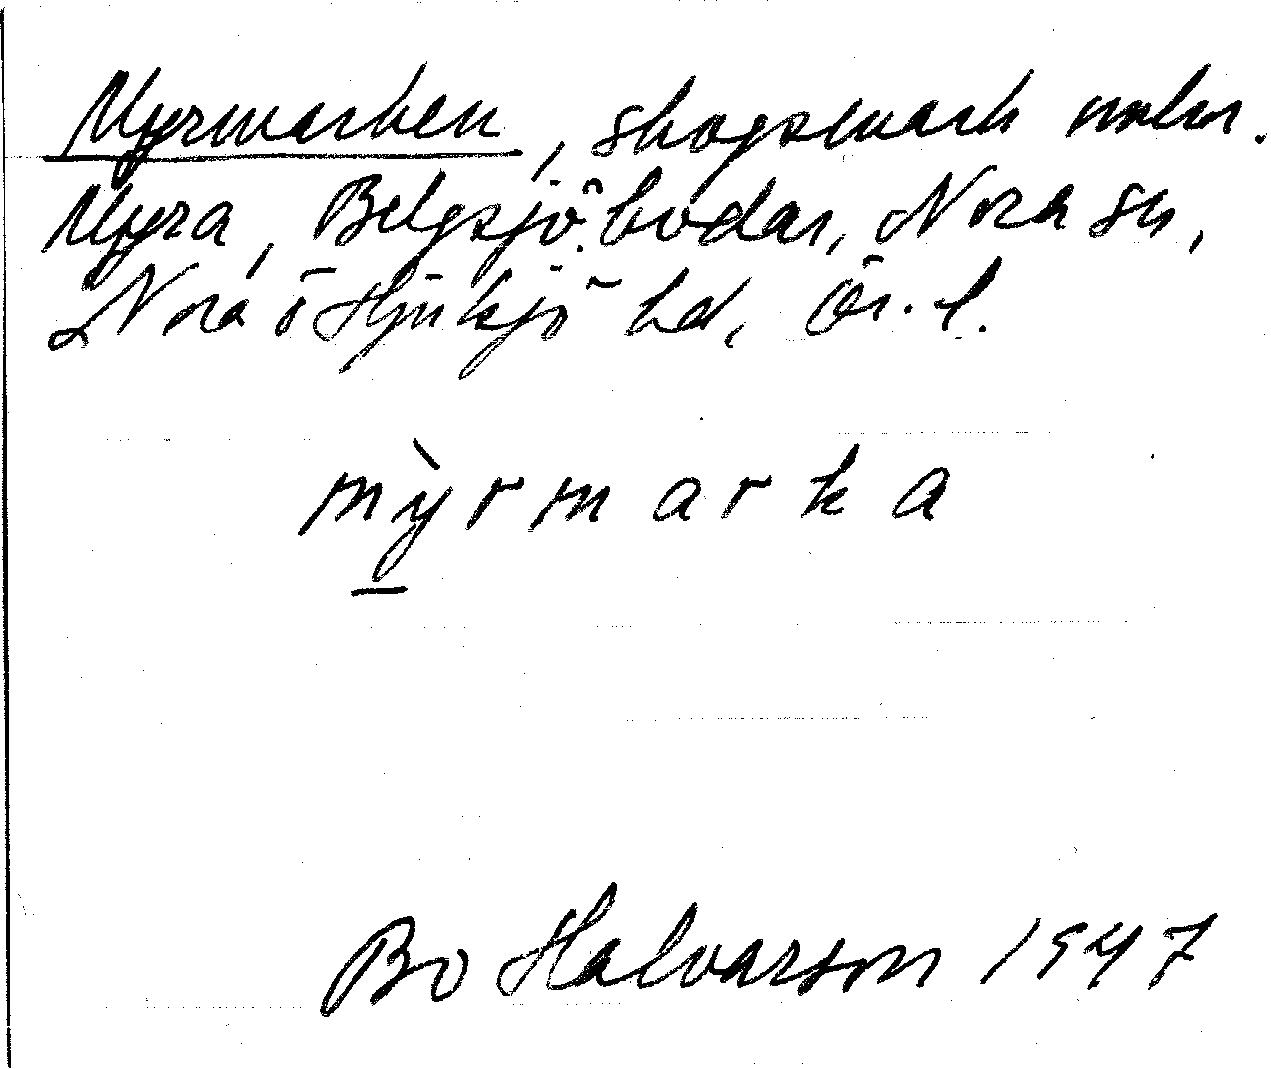 Myrmarken, skogsmark under.
Myra, Belgsjöbodar, Nora sn,
Nora o Hjulsjö hd, Ör. l.
mỳrmarka
Bo Halvarson 1947